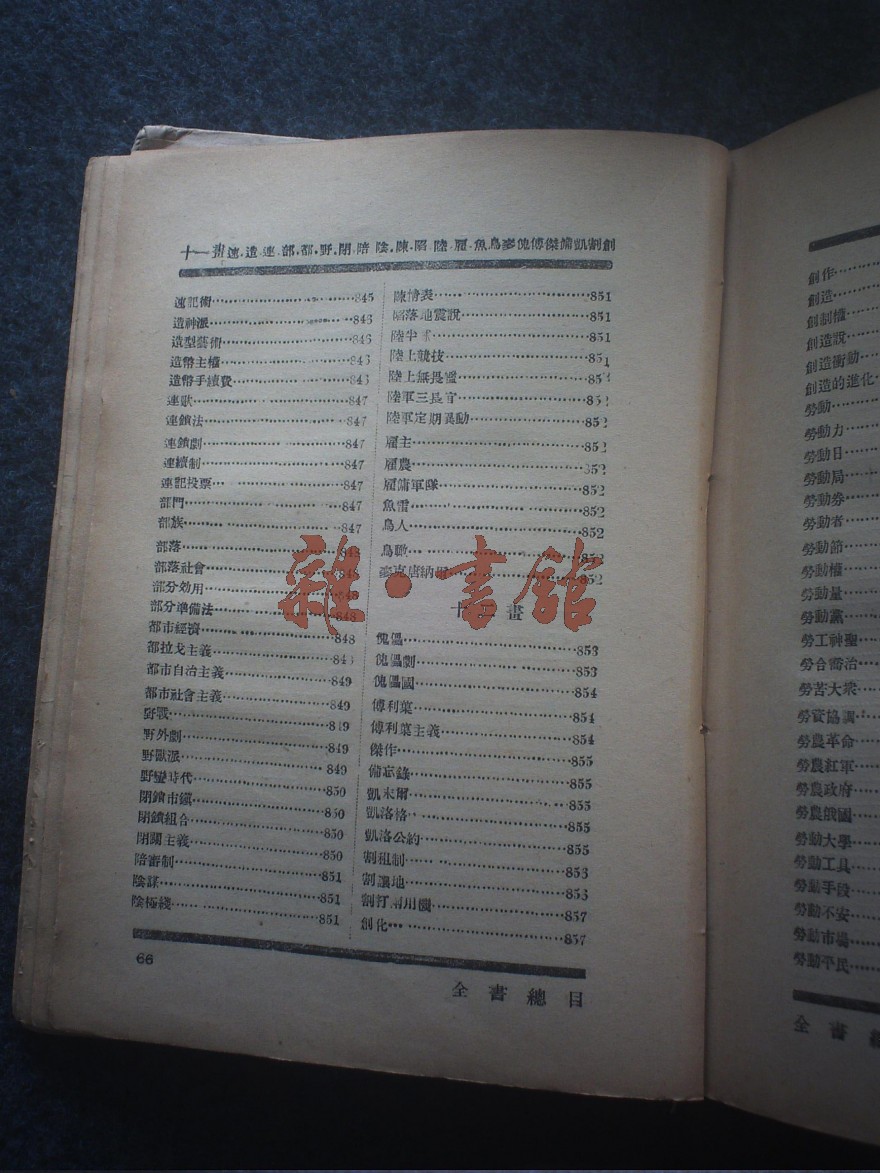 十一畫 速.造.連.部.都.野.閉.陪.陰.陳.陷.陸.雇.魚.鳥.麥.傀.傅.傑.備.凱.割.創
速記術 845
造神派 846
造型藝術 846
造幣主權 846
造幣手續費 846
連歌 847
連鎖法 847
連鎖劇 847
連續制 847
連記投票 847
部門 847
部族 847
部落 848
部落社會 848
部分効用 848
部分準備法 848
都市經濟 848
都拉戈主義 848
都市自治主義 849
都市社會主義 849
野戰 849
野外劇 849
野獸派 849
野蠻時代 850
閉鎖市鎮 850
閉鎖組合 850
閉關主義 850
陪審制 851
陰謀 851
陰極綫 851
陳情表 851
陷落地震說 851
陸半球 851
陸上競技 851
陸上無畏艦
陸軍三長官 852
陸軍定期異動 852
雇主 852
雇農 852
雇傭軍隊 852
魚雷 852
鳥人 852
鳥瞰 852
麥克唐納 852
十二畫
傀儡 853
傀儡劇 853
傀儡國 854
傅利葉 854
傅利葉主義 854
傑作 855
備忘錄 855
凱末爾 855
凱洛格 855
凱洛公約 855
割租制
割讓地
割打兩用機 857
創化 857
66
全書總目
創作
創造
創制權
創造說
創造衝動
創造的進化
勞動
勞動力
勞動日
勞動局
勞動券
勞動者
勞動節
勞動權
勞動量
勞動黨
勞工神聖
勞合喬治
勞苦大衆
勞資協調
勞農革命
勞農紅軍
勞農政府
勞農俄國
勞動大學
勞動工具
勞動手段
勞動不安
勞動市場
勞動平民
全書總
雜·書館